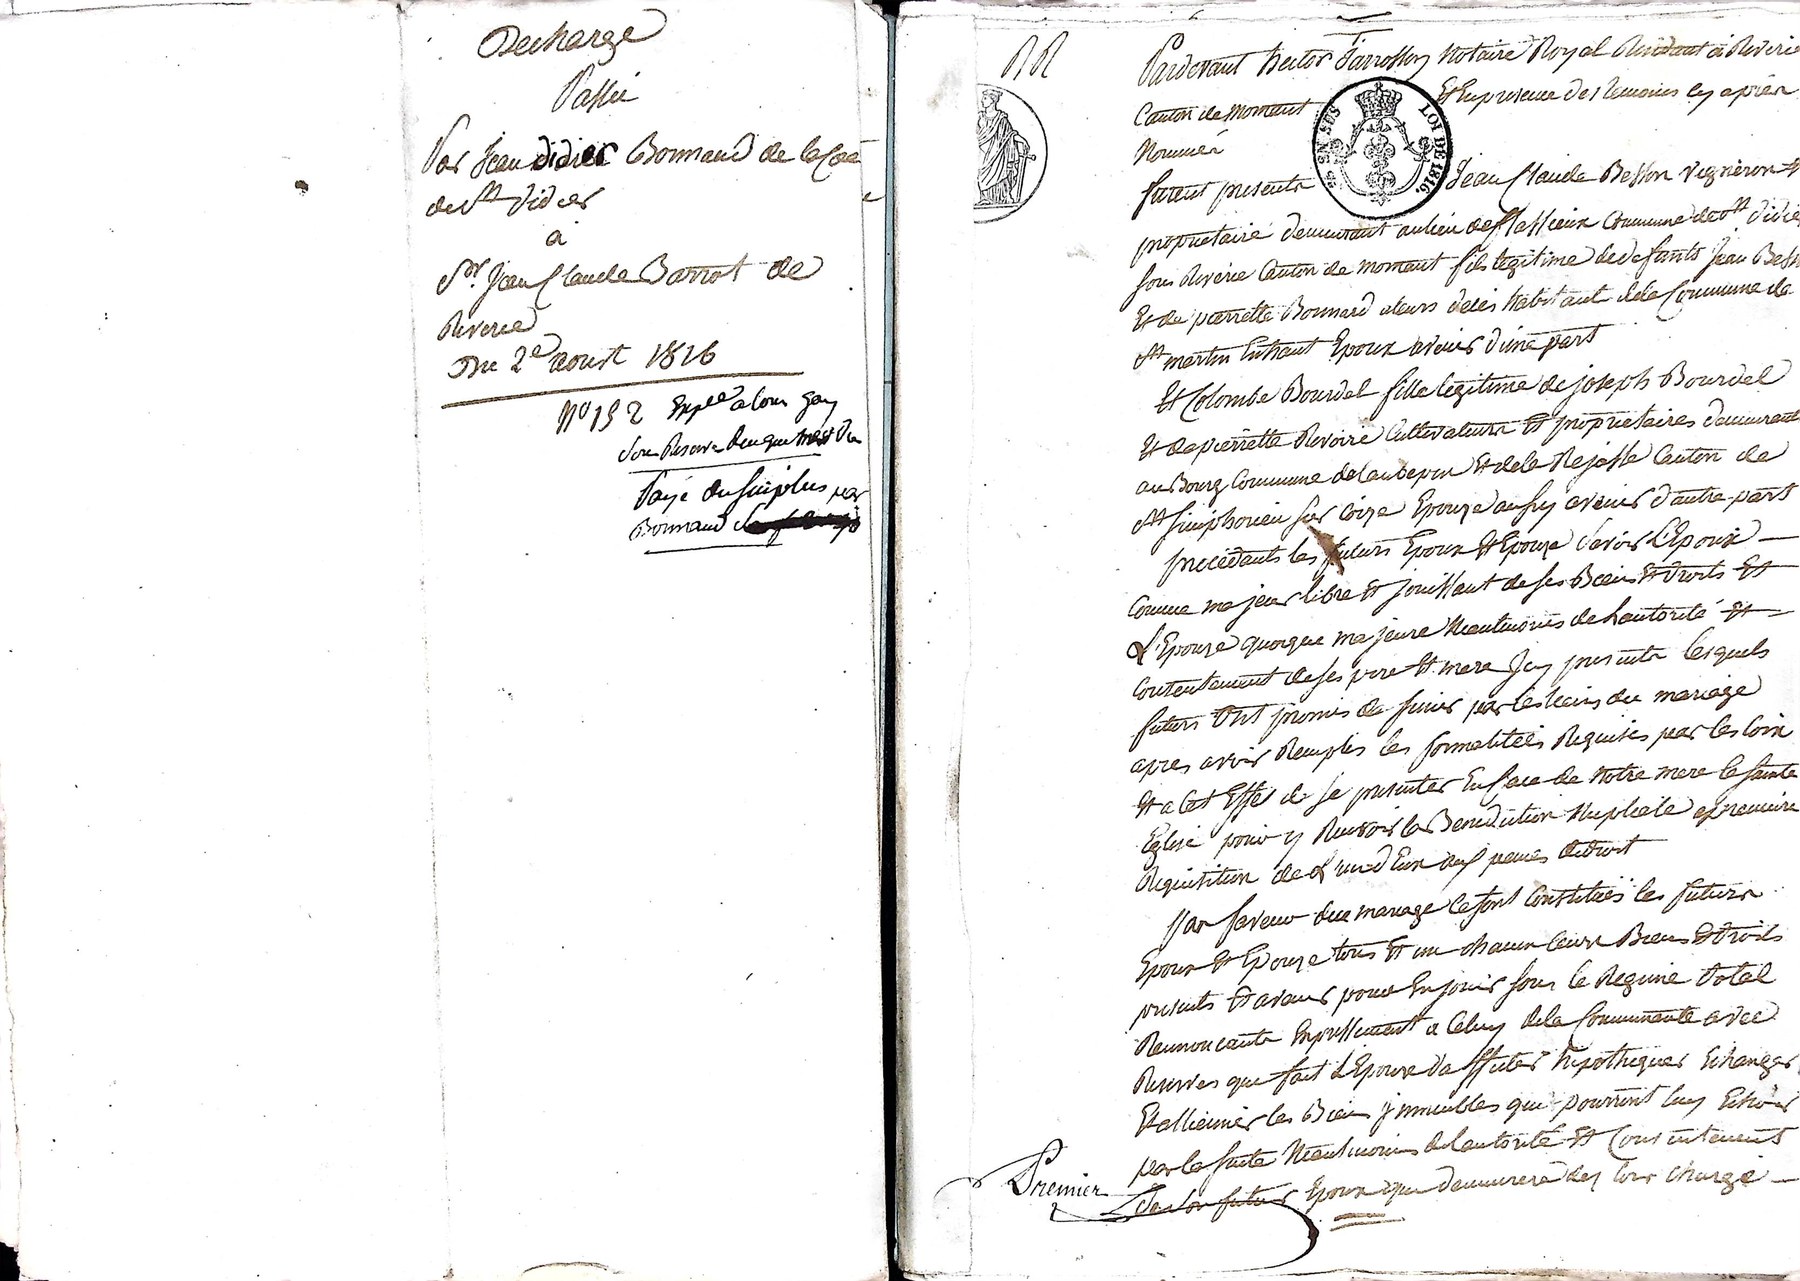 Decharge
Passée
Par Jean didier Bonnand de la Cne
de St Didier
à
Sr. Jean Claude Barrot de
Riverie
Du 2e aoust 1816
No 152 Expée a lour Gay
sou Reserve
Payé du Surplus par
Bonnand
Pardevant hector Jarrosson Notaire Royal Residant à Riverie
Canton de Mornant Et En presence des temoins cy après
Nommés
furent presents Jean Claude Besson Vigneron Et
proprietaire demeurant au lieu de flassieux Commune de St didier
sous Riverie Canton de mornant fils legitime de defunts Jean Besson
Et de pierrette Bonnard aleurs deces habitant de la Commune de
St martin Enhaut Epoux avenir d'une part
Et Colombe Bourdel fille legitime de joseph Bourdel
Et de pierrette Rivoire Cultivateurs Et proprietaires demeurants
au Bourg Commune de laubepin Et de la Rejasse Canton de
St Simphorien sur coize Epouze aussy avenir d'autre part
procedants les futurs Epoux Et Epouze savoir L'Epoux
Comme majeur libre Et jouissant de ses Biens Et droits Et
L'Epouze quoique majeure Neantmoins de Lautorité Et
Consentement de ses pere Et mere Icy presents lesquels
futurs Ont promis de s'unir par les liens du mariage
apres avoir Remplis les formalitées Requises par les loix
Et a Cet Effet de se presenter En face de Notre mere la Sainte
Eglise pour y Recevoir la Benediction Nuptiale a premiere
Requisition de L'un d'Eux aux peines de droit
Par faveur du mariage se sont Constitués les futurs
Epoux Et Epouze tous Et un chacun leurs Biens Et droits
presents Et avenir pour En jouir sous le Regime Dotal
Renoncants Expressement a Celuy de la Communauté avec
Reserves que fait L'Epouze d'affecter hipothequer Echanger
Et alliener les Biens immeubles qui pourront luy Echoir
par la suite Neantmoins de Lautorité Et Consentement
de son futur Epoux qui demeurera des lors chargé
Premier
25 EN SUS
LOI DE 1816